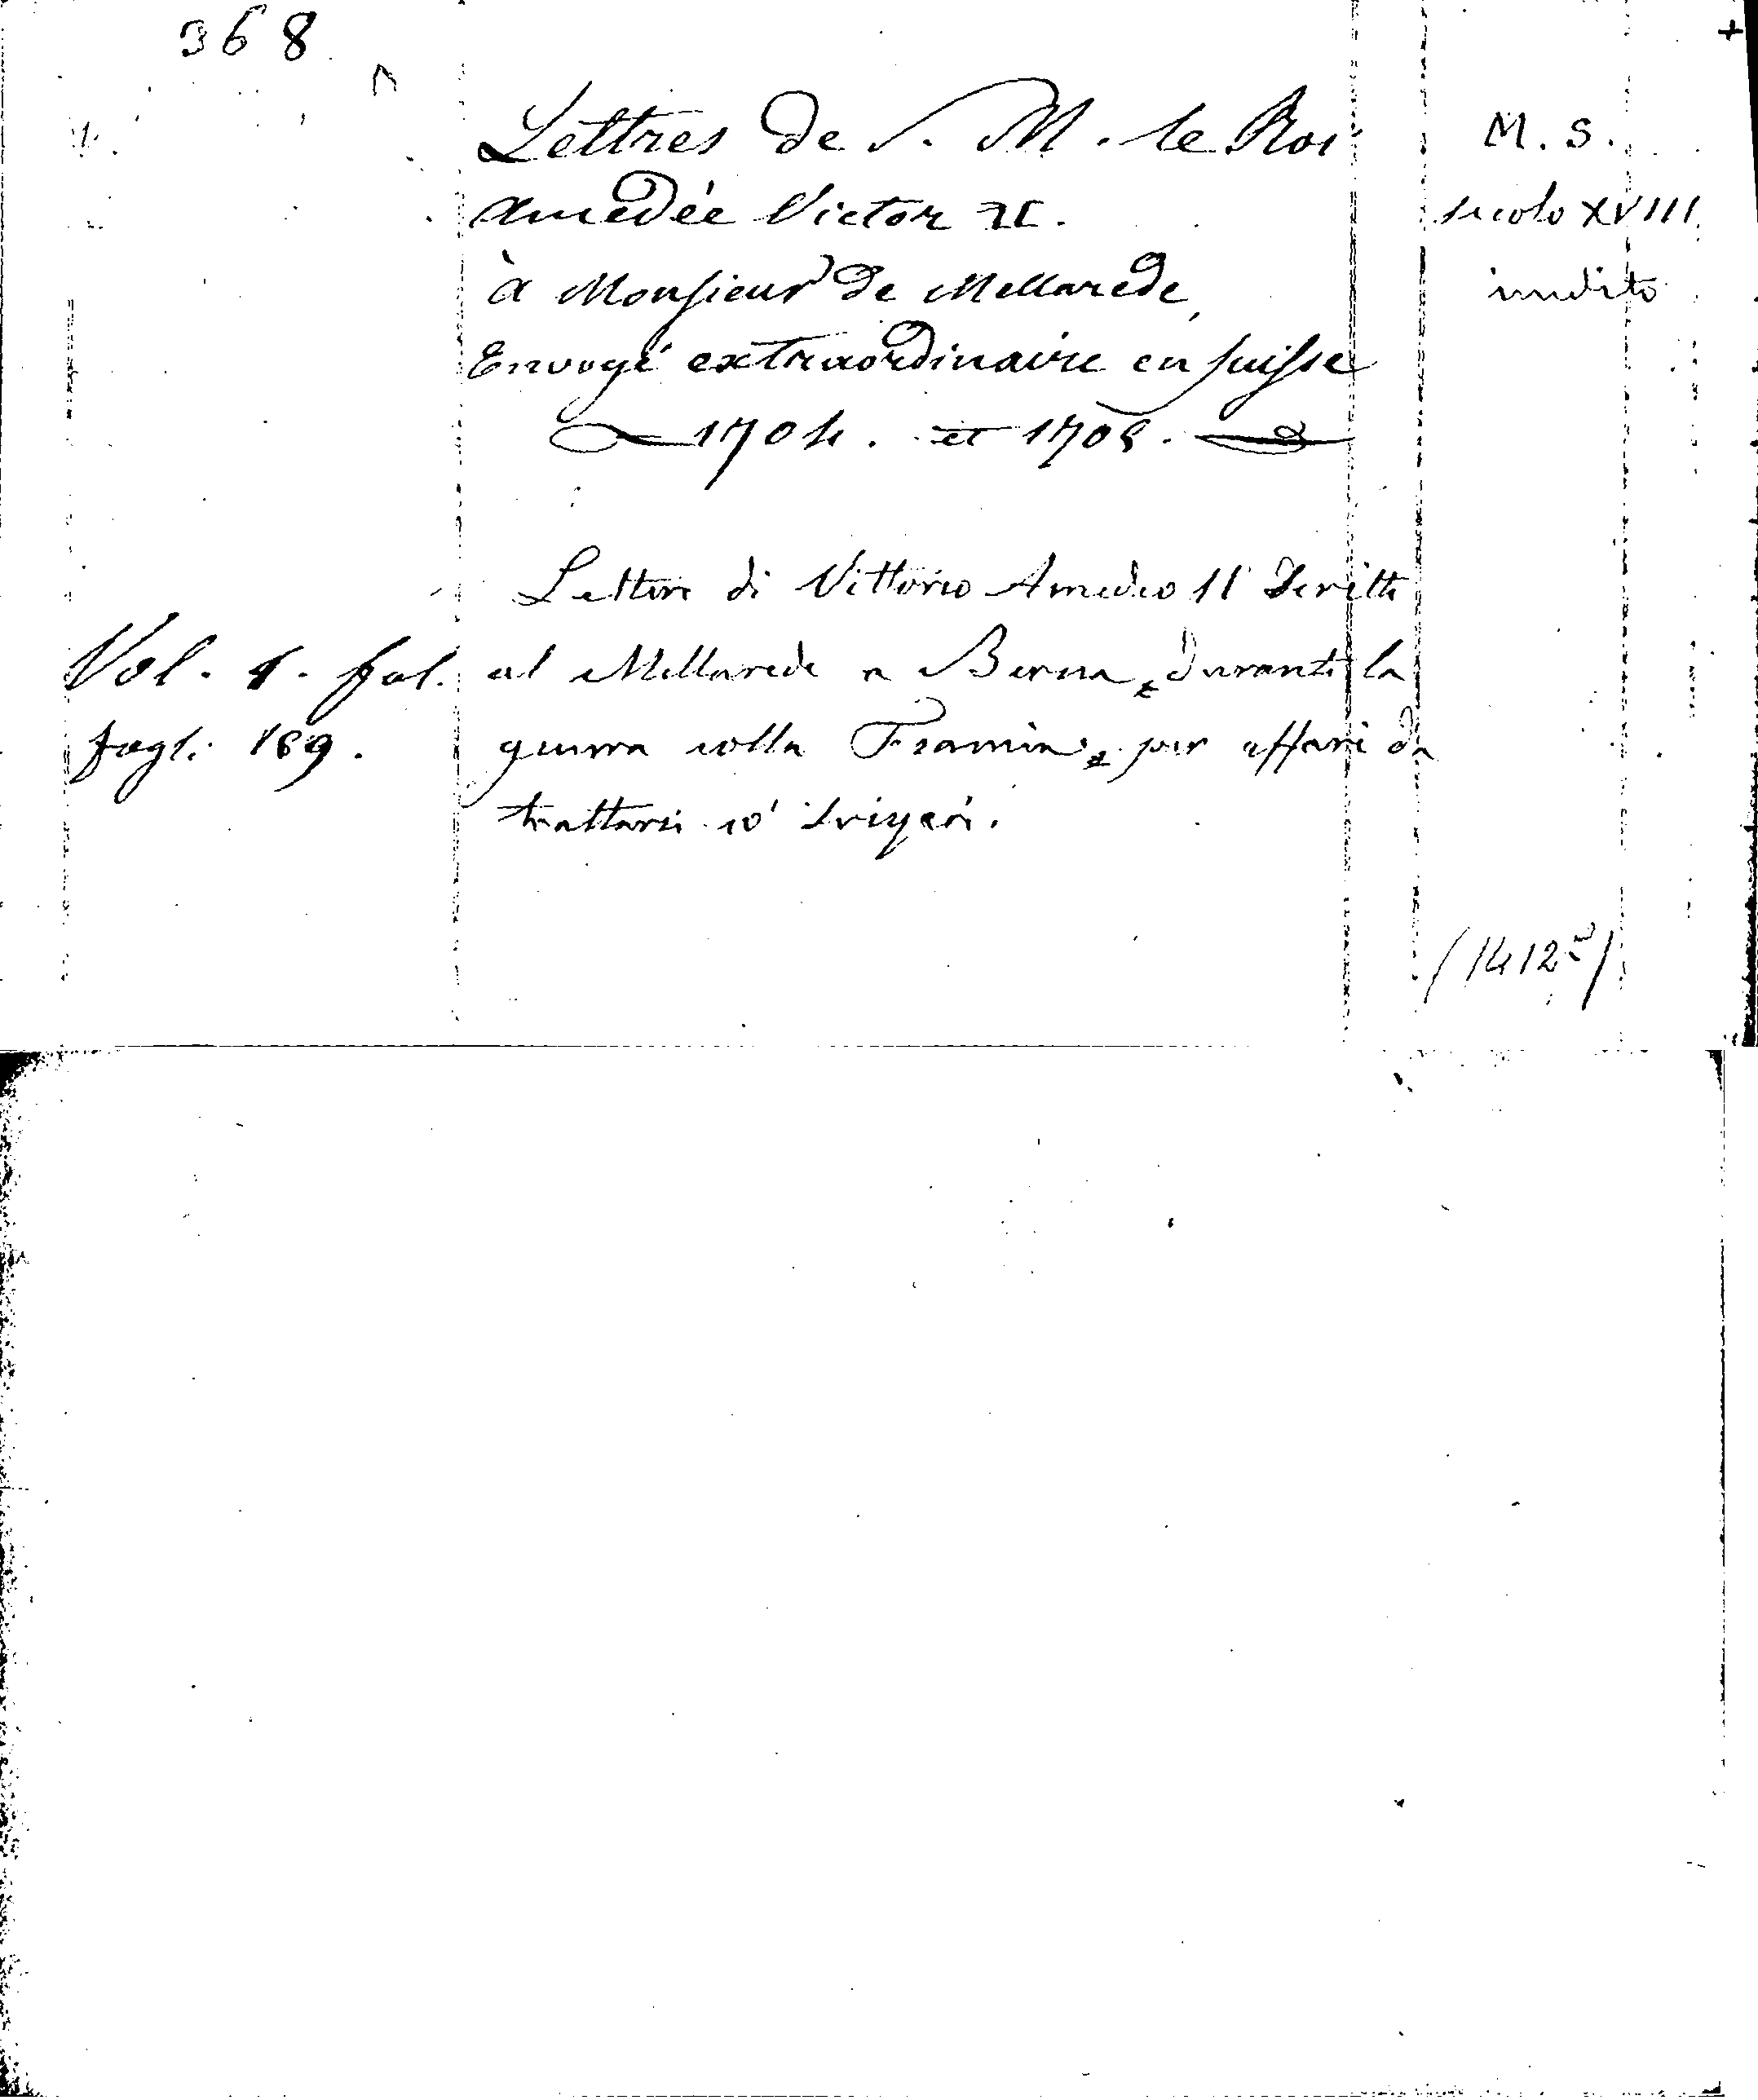 368
Lettres de S. M. le Roi
Amedée Victor II.
à Monsieur de Mellarede,
Envoyé extraordinaire en Suisse
1704. et 1705.
M. S.
secolo XVIII
inedito
Lettere di Vittorio Amedeo II scritte
al Mellarede a Berna, durante la
guerra colla Francia, per affari da
trattarsi co' svizzeri.
Vol. 1. fol.
fogli 169.
(1412)